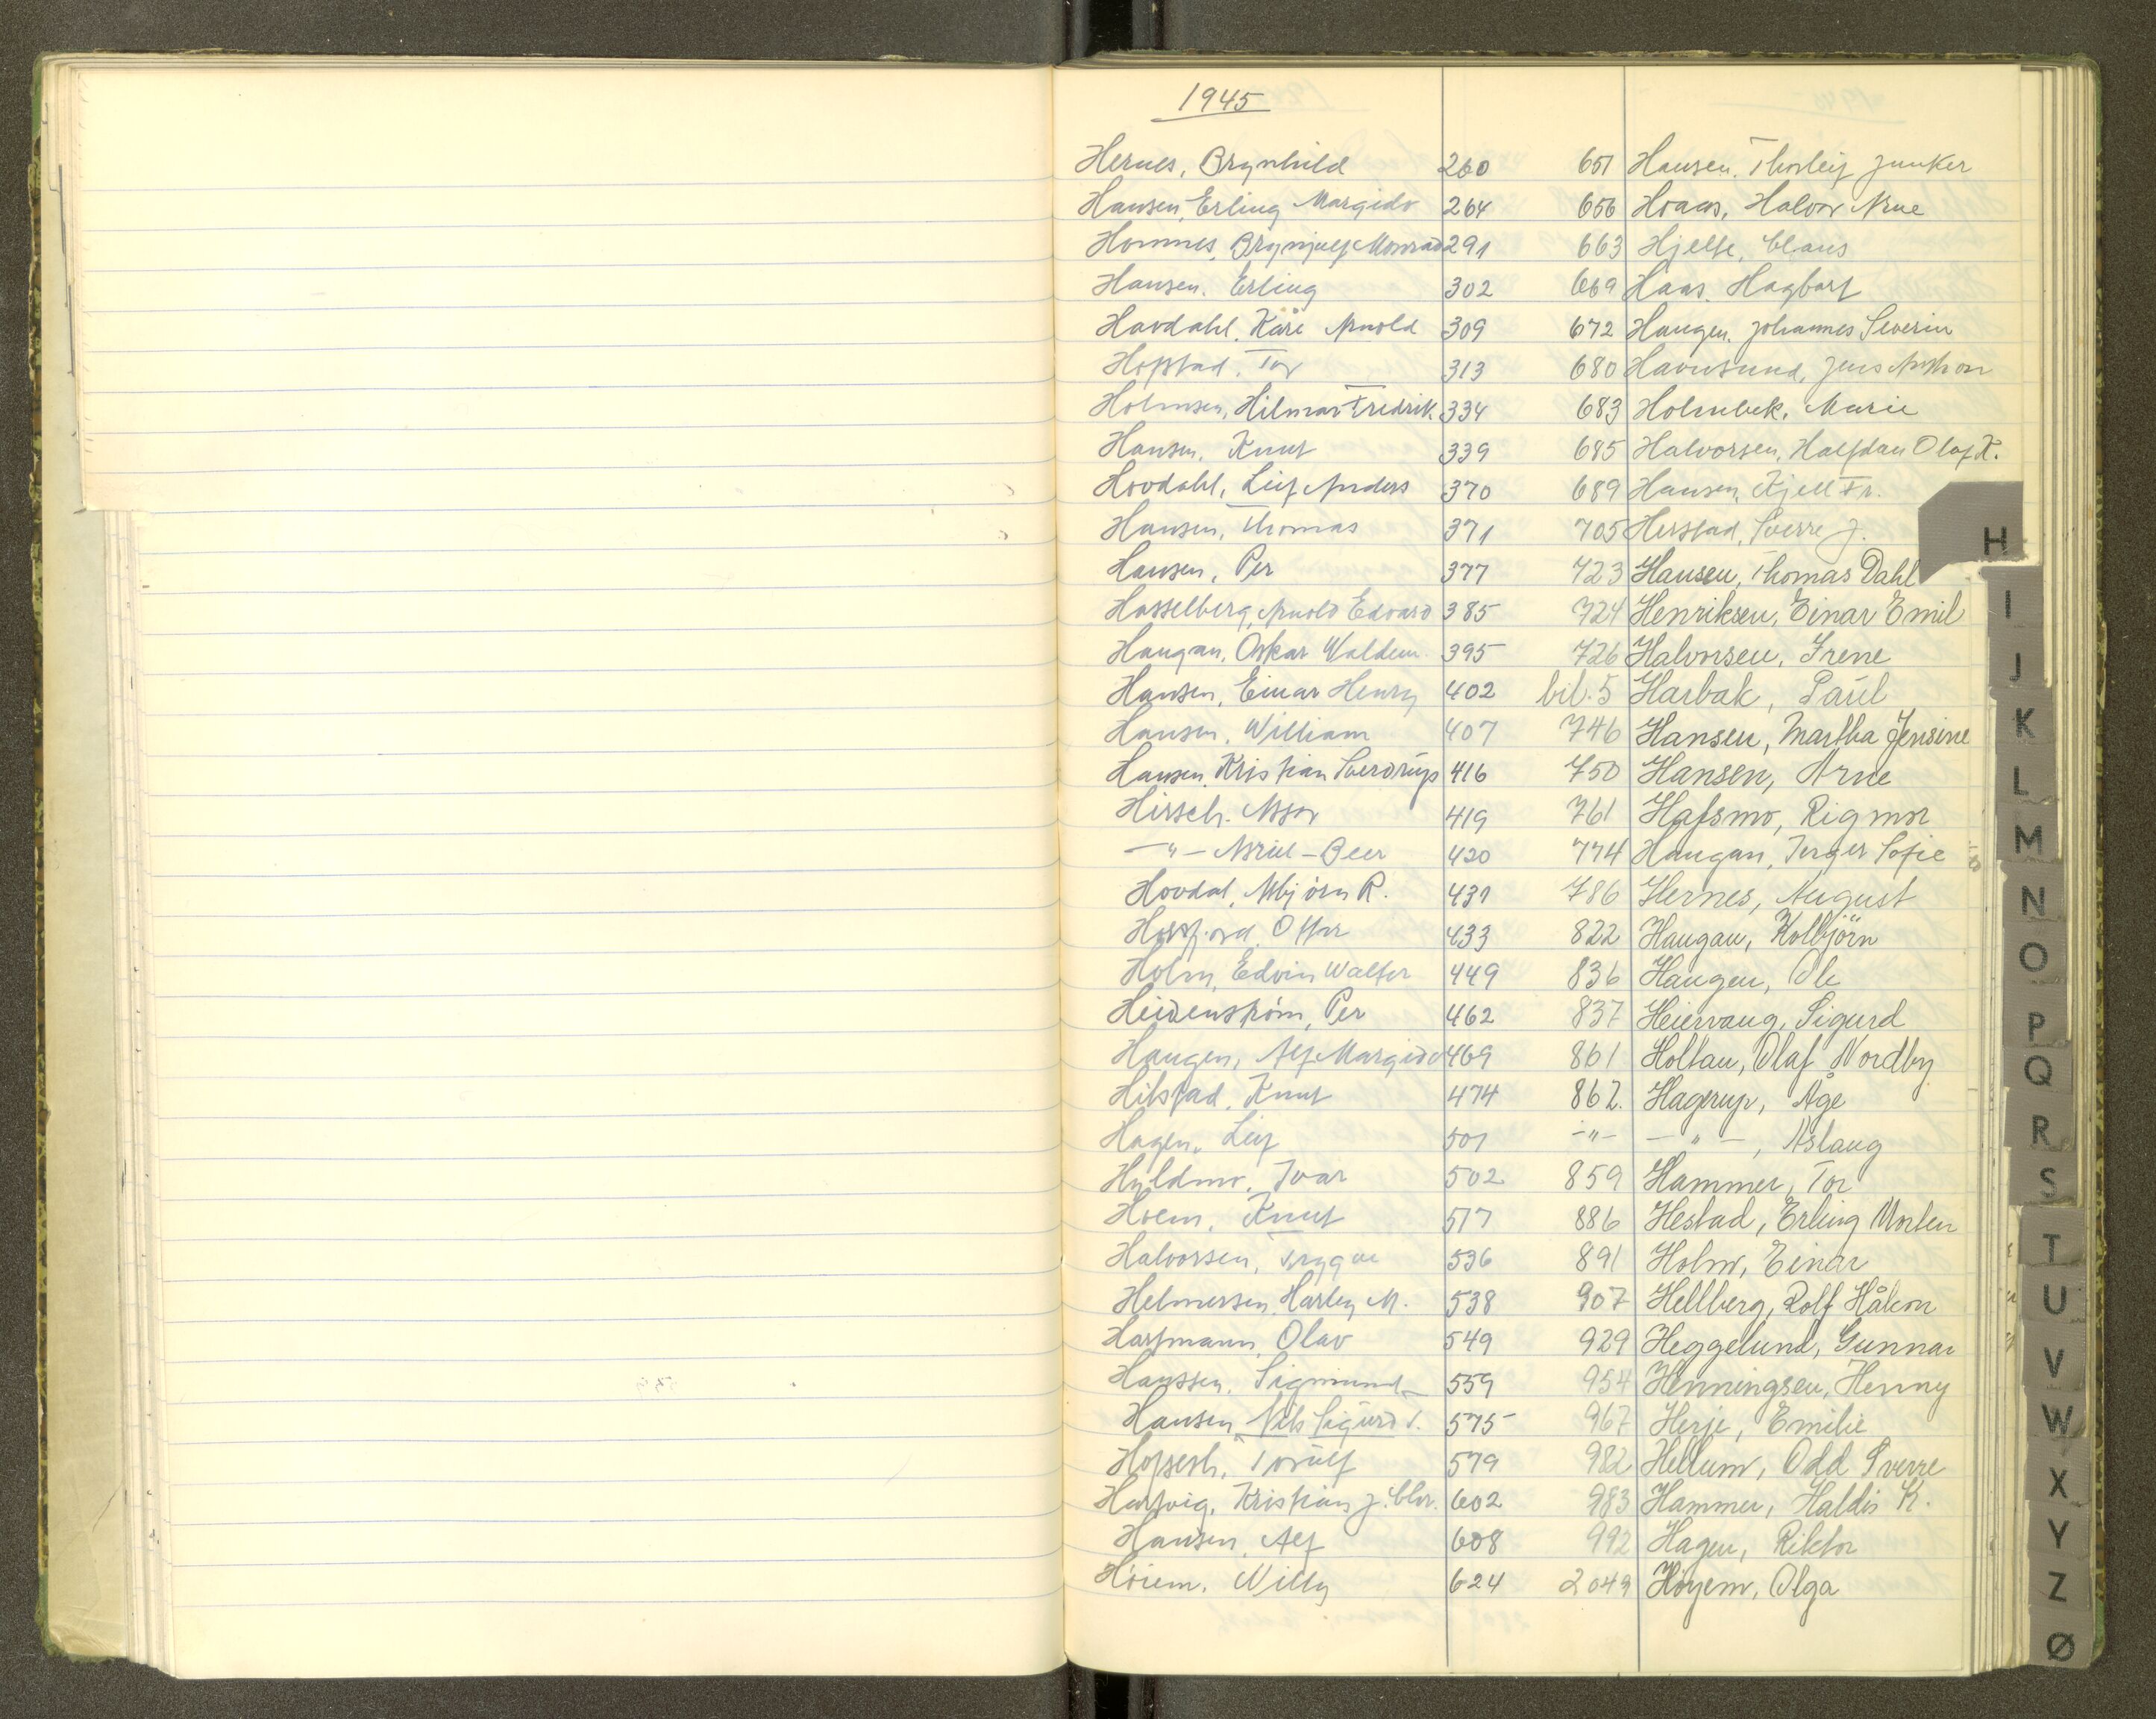 1945
Hernes, Brynhild 260
Hansen, Erling Margido 264
Hommes, Brynjulf Monrad 291
Hansen, Erling 302
Havdahl, Kåre Arnold 309
Hopstad, Tor 313
Holmsen, Hilmar Fredrik. 334
Hansen, Knut 339
Hovdahl, Leif Anders 370
Hansen, Thomas 371
Hansen, Per 377
Hasselberg, Arnold Edvard 385
Haugan, Oskar Waldem. 395
Hansen, Einar Henry 402
Hansen, William 407
Hansen, Kristian Sverdrup 416
Hirsch. Assor 419
-"- Asriel-Beer 420
Hovdal, Asbjörn R. 431
Hossfjord, Ottar 433
Holm, Edvin Walter 449
Heidenström, Per 462
Haugen, Alf Margido 469
Hilstad, Knut 474
Hagen, Leif 501
Hyldmo, Ivar 502
Hoem, Knut 517
Halvorsen, Trygve 536
Helmersen, Harley M. 538
Hartmann, Olav 549
Hanssen, Sigmund 559
Hansen, Nils Sigurd S. 575
Hopseth, Torulf 579
Hartvig, Kristian J. Chr. 602
Hansen, Alf 608
Höiem, Willy 624
651 Hansen, Thorleif Junker
656 Hraas, Halvor Arne
663 Hjelte, Claus
669 Haas, Hagbart
672 Haugen, Johannes Severin
680 Havnsund, Jens Anthon
683 Holmbek, Marie
685 Halvorsen, Halfdan Olaf K.
689 Hansen, Kjell Fr.
705 Herstad, Sverre J.
723 Hansen, Thomas Dahl
724 Henriksen, Einar Emil
726 Halvorsen, Irene
bil. 5 Harbak, Paul
746 Hansen, Martha Jensine
750 Hansen, Arne
761 Hafsmo, Rigmor
774 Haugan, Inger Sofie
786 Hernes, August
822 Haugan, Kolbjörn
836 Haugen, Ole
837 Heiervang, Sigurd
861 Holtan, Olaf Nordby
862. Hagerup, Åge
-"- -"-, Aslaug
859 Hammer, Tor
886 Hestad, Erling Morten
891 Holm, Einar
907 Hellberg, Rolf Håkon
929 Heggelund, Gunnar
954 Henningsen, Henny
967 Herje, Emilie
982 Hellum, Odd Sverre
983 Hammer, Haldis K.
992 Hagen, Riktor
2049 Höyem, Olga
H
I
J
K
L
M
N
O
P
Q
R
S
T
U
V
W
X
Y
Z
Ø